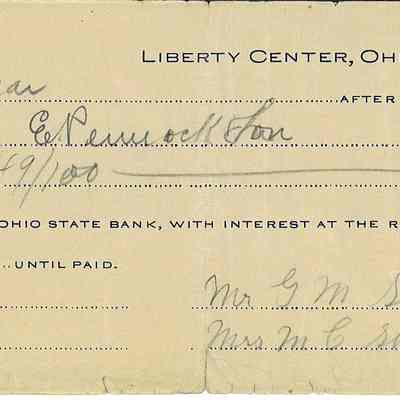 LIBERTY CENTER, OH
ear
AFTER
E Pennock & Son
49/100
OHIO STATE BANK, WITH INTEREST AT THE R
UNTIL PAID.
Mr G M S
Mrs M C